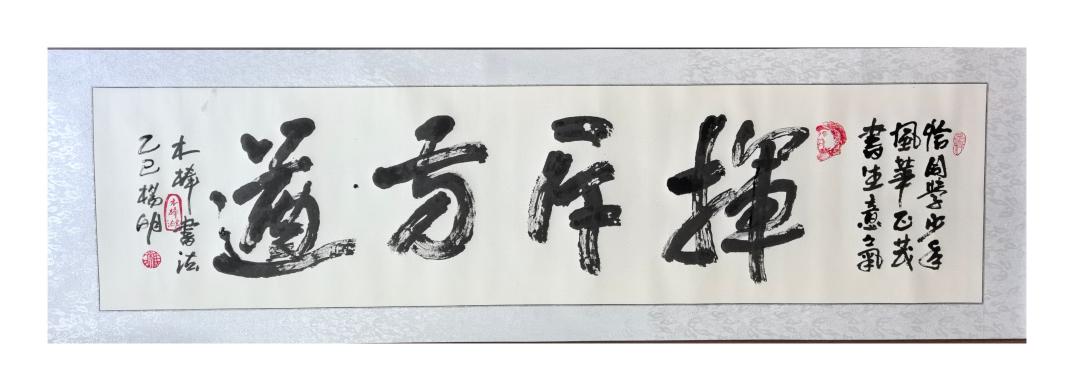 恰同學少年
風華正茂
書生意氣
揮斥方遒
木樺書法
乙巳楊明